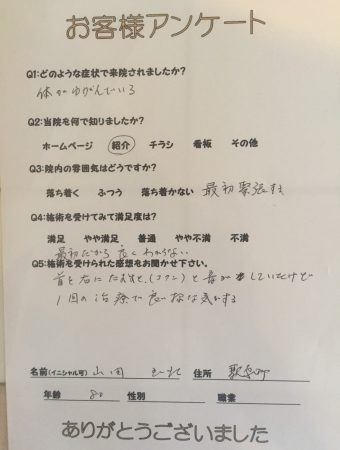 お客様アンケート
Q1:どのような症状で来院されましたか?
体がゆがんでいる
Q2:当院を何で知りましたか?
ホームページ 紹介 チラシ 看板 その他
Q3:院内の雰囲気はどうですか?
落ち着く ふつう 落ち着かない 最初緊張する
Q4:施術を受けてみて満足度は?
満足 やや満足 普通 やや不満 不満
最初だから良くわからない
Q5:施術を受けられた感想をお聞かせ下さい。
首を右にたおすと、(コクン)と音がしていたけど
1回の治療で良い様な気がする
名前(イニシャル可) 山 住所
年齢 80 性別 職業
ありがとうございました